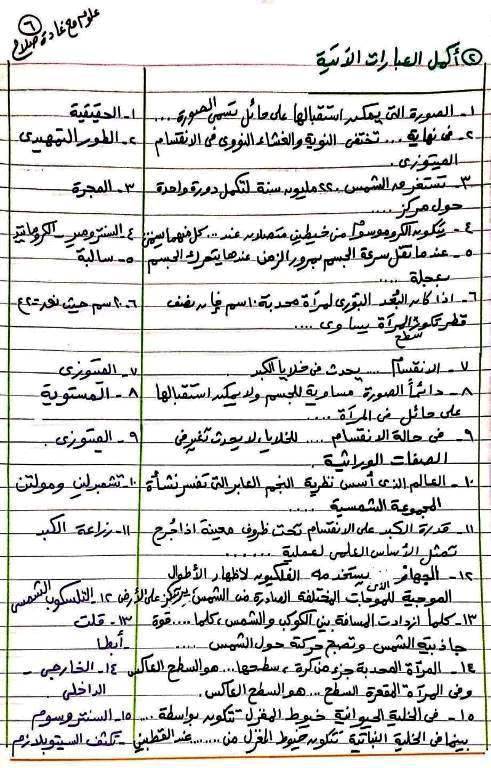 علوم مع غادة صلاح
٦
٢ أكمل العبارات الآتية
١- الصورة التى يمكن استقبالها على حائل تسمى الصورة ... ١- الحقيقية
٢- فى نهاية ... تختفى النوية والغشاء النووى فى الانقسام ٢- الطور التمهيدى
الميتوزى.
٣- تستغرق الشمس ٢٢٠ مليون سنة لتكمل دورة واحدة ٣- المجرة
حول مركز ....
٤- يتكون الكروموسوم من خيطين متصلان عند ... كل منهما يسمى ٤- السنترومير - الكروماتيد
٥- عندما تقل سرعة الجسم بمرور الزمن عندها يتحرك الجسم ٥- سالبة
بعجلة ....
٦- اذا كان البعد البؤرى لمرآة محدبة ١٠ سم فإن نصف ٦- ٢٠ سم حيث نق = ٢ع
قطر تكور سطح المرآة يساوى ....
٧- الانقسام .... يحدث فى خلايا الكبد ٧- الميتوزى
٨- دائماً الصورة مساوية للجسم ولا يمكن استقبالها ٨- المستوية
على حائل فى المرآة ....
٩- فى حالة الانقسام .... للخلايا، لا يحدث تغير فى ٩- الميتوزى
الصفات الوراثية.
١٠- العالم الذى أسس نظرية النجم العابر التى تفسر نشأة ١٠- تشمبرلين ومولتن
المجموعة الشمسية ....
١١- قدرة الكبد على الانقسام تحت ظروف معينة اذا جرح ١١- زراعة الكبد
تمثل الأساس العلمى لعملية ......
١٢- الجهاز .... يستخدمه الفلكيون لاظهار الأطوال
الموجية للموجات المختلفة الصادرة من الشمس الذى يرتكز على الأرض ١٢- التلسكوب الشمسى
١٣- كلما ازدادت المسافة بين الكوكب والشمس، كلما .... قوة ١٣- قلت
جاذبية الشمس وتصبح حركة حول الشمس .... - أبطأ
١٤- المرآة المحدبة جزء من كرة، سطحها ... هو السطح العاكس ١٤- الخارجى -
وفى المرآة المقعرة السطح ... هو السطح العاكس. الداخلى
١٥- فى الخلية الحيوانية خيوط المغزل تتكون بواسطة .... ١٥- السنتروسوم
بينما فى الخلية النباتية تتكون خيوط المغزل من ...... عند القطبين - تكثف السيتوبلازم